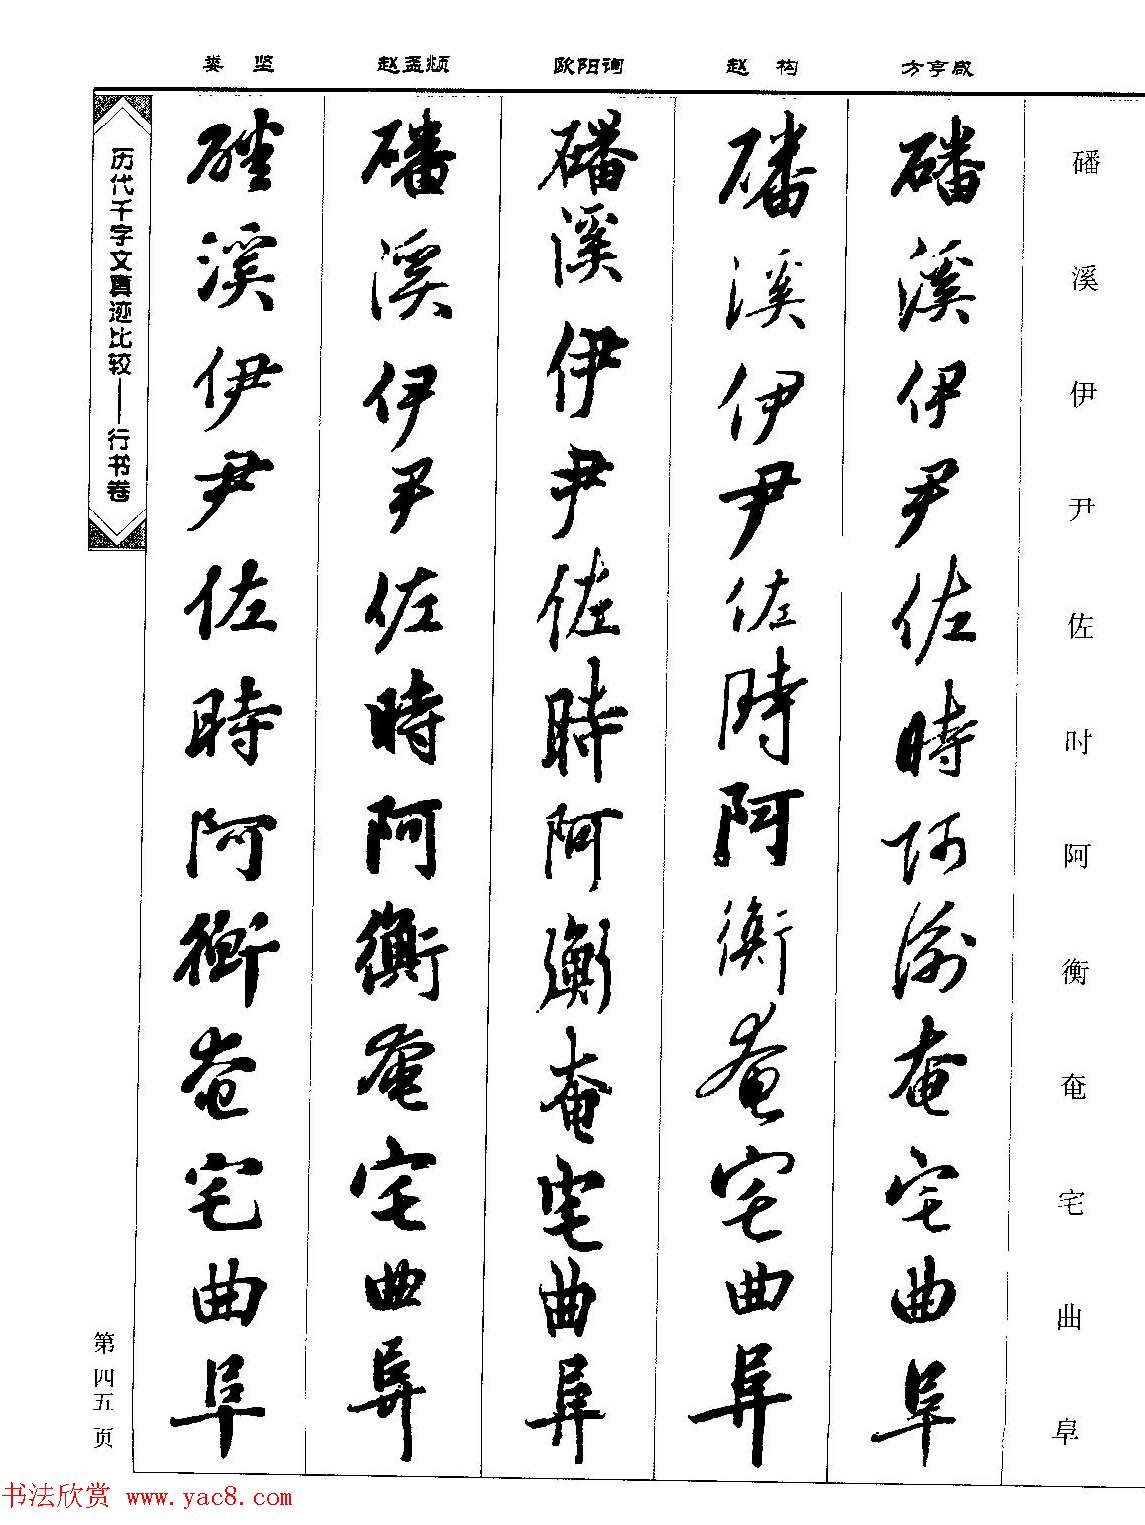 磻溪伊尹佐时阿衡奄宅曲阜
方亨咸
磻溪伊尹佐時阿衡奄宅曲阜
赵构
磻溪伊尹佐時阿衡奄宅曲阜
欧阳询
磻溪伊尹佐時阿衡奄宅曲阜
赵孟頫
磻溪伊尹佐時阿衡奄宅曲阜
娄坚
磻溪伊尹佐時阿衡奄宅曲阜
历代千字文真迹比较——行书卷
第四五页
书法欣赏 www.yac8.com